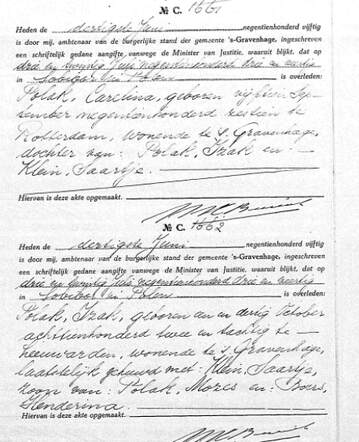 № C. 1661
Heden de dertigste Juni negentienhonderd vijftig
is door mij, ambtenaar van de burgerlijke stand der gemeente 's-Gravenhage, ingeschreven
een schriftelijk gedane aangifte vanwege de Minister van Justitie, waaruit blijkt, dat op
drie en twintig Juli negentienhonderd drie en veertig
in Sobibor in Polen is overleden:
Polak, Carolina, geboren vijftien Sep
tember negentienhonderd zestien te
Rotterdam, wonende te 's Gravenhage,
dochter van: Polak, Izak en
Klein, Saartje.
Hiervan is deze akte opgemaakt.
№ C. 1662
Heden de dertigste Juni negentienhonderd vijftig
is door mij, ambtenaar van de burgerlijke stand der gemeente 's-Gravenhage, ingeschreven
een schriftelijk gedane aangifte vanwege de Minister van Justitie, waaruit blijkt, dat op
drie en twintig Juli negentienhonderd drie en veertig
in Sobibor in Polen is overleden:
Polak, Izak, geboren een en dertig October
achttienhonderd twee en tachtig te
Leeuwarden, wonende te 's Gravenhage,
laatstelijk gehuwd met: Klein, Saartje,
zoon van: Polak, Mozes en: Boers,
Henderina.
Hiervan is deze akte opgemaakt.